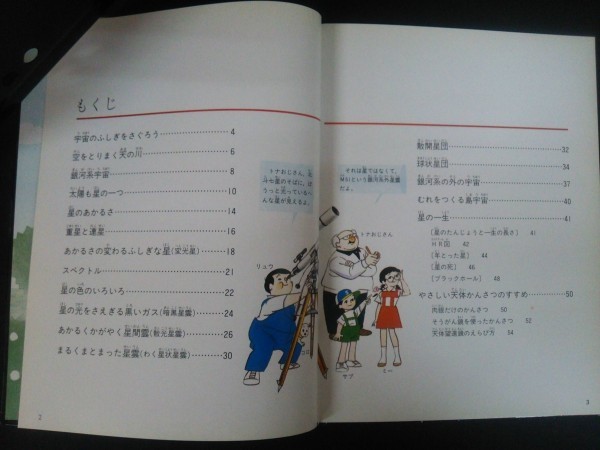 もくじ
宇宙のふしぎをさぐろう 4
空をとりまく天の川 6
銀河系宇宙 8
太陽も星の一つ 10
星のあかるさ 14
重星と連星 16
あかるさの変わるふしぎな星(変光星) 18
スペクトル 21
星の色のいろいろ 22
星の光をさえぎる黒いガス(暗黒星雲) 24
あかるくかがやく星間雲(散光星雲) 26
まるくまとまった星雲(わく星状星雲) 30
2
トナおじさん、北
斗七星のそばに、ぼ
うっと光っている
んな星が見えるよ。
それは星ではなくて、
という銀河系外星雲
だよ。
トナおじさん
リュウ
マブ
ミー
散開星団 32
球状星団 34
銀河系の外の宇宙 37
むれをつくる島宇宙 40
星の一生 41
[星のたんじょうと一生の長さ] 41
HR図 42
[年とった星] 44
[星の死] 46
[ブラックホール] 48
やさしい天体かんさつのすすめ 50
肉眼だけのかんさつ 50
そうがん鏡を使ったかんさつ 52
天体望遠鏡のえらび方 54
3